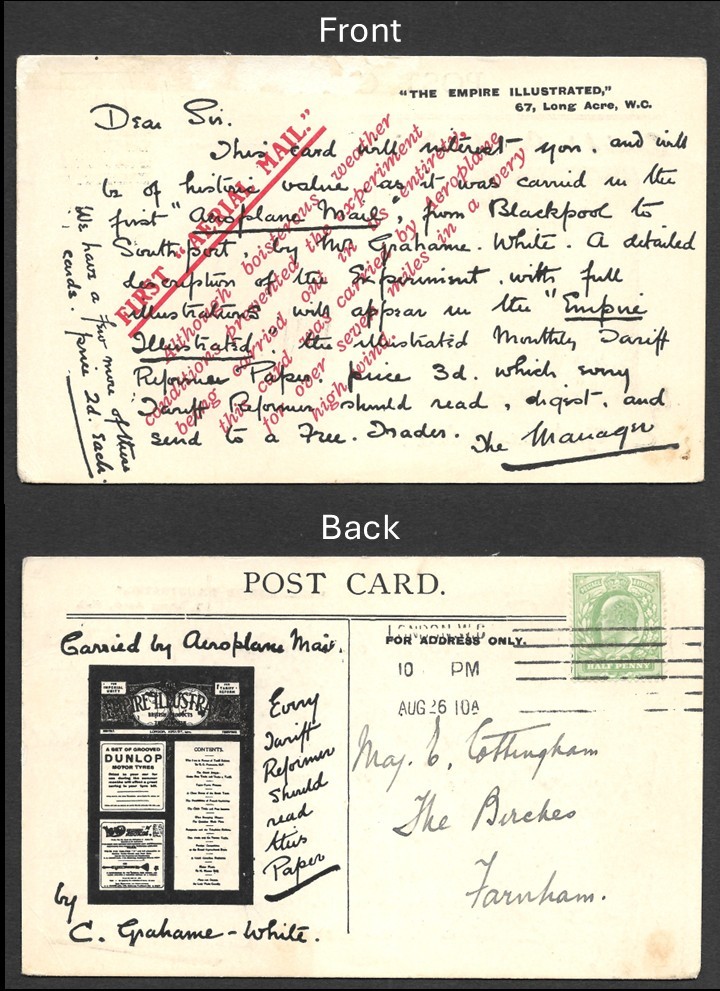 Front
"THE EMPIRE ILLUSTRATED,"
67, Long Acre, W.C.
Dear Sir.
This card will interest you. and will
be of historic value as it was carried in the
first "Aeroplane Mail", from Blackpool to
Southport, by Mr Grahame. White. A detailed
description of the Experiment. with full
illustrations will appear in the "Empire
Illustrated". the illustrated Monthly Tariff
Reformer Paper. price 3d. which every
Tariff Reformer should read, digest. and
send to a Free. Trader. The Manager
We have a few more of these
cards. price 2d. each.
FIRST "AERIAL MAIL."
Although boisterous weather
conditions prevented the experiment
being carried out in its entirety,
this card was carried by Aeroplane
for over seven miles in a very
high wind.
Back
POST CARD.
Carried by Aeroplane Mail.
FOR ADDRESS ONLY.
LONDON. W.C
10 PM
AUG 26 10A
HALF PENNY
EMPIRE ILLUSTRA
A SET OF GROOVED
DUNLOP
MOTOR TYRES
CONTENTS.
Every
Tariff
Reformer
should
read
this
Paper
by
C. Grahame-White.
Maj. E. Cottingham
The Birches
Farnham.